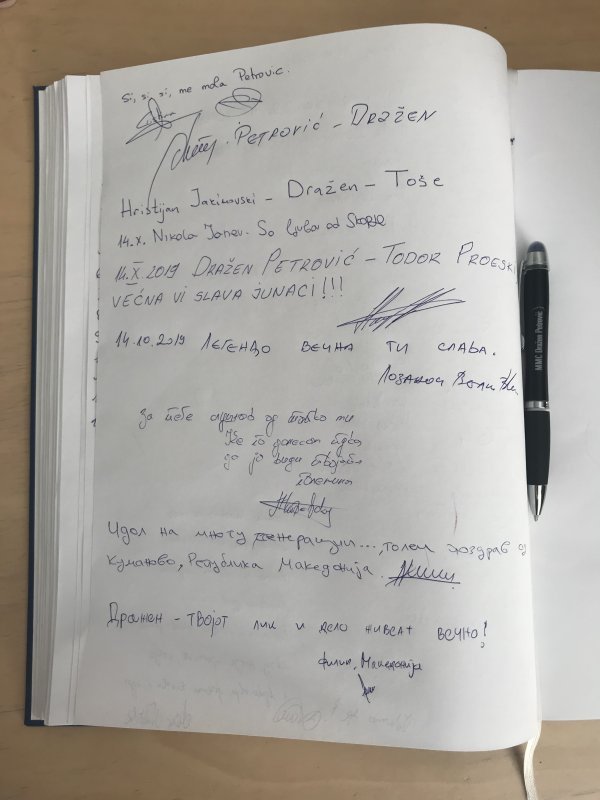 si, si, si, me mola Petrovic.
Petrović - Dražen
Hristijan Jakimovski - Dražen - Toše
14.X. Nikola Jonev. So ljubov od Skopje
14.X.2019 Dražen Petrović - Todor Proeski
VEČNA VI SLAVA JUNACI!!!
14.10.2019 ЛЕГЕНДО ВЕЧНА ТИ СЛАВА.
За тебе од
Ќе го донесам
да ја види твојата
големина
Идол на многу генерации..., голем поздрав од
Куманово, Република Македонија.
Дражен - твојот лик и дело живеат вечно!
Филип, Македонија
MMC Dražen Petrović